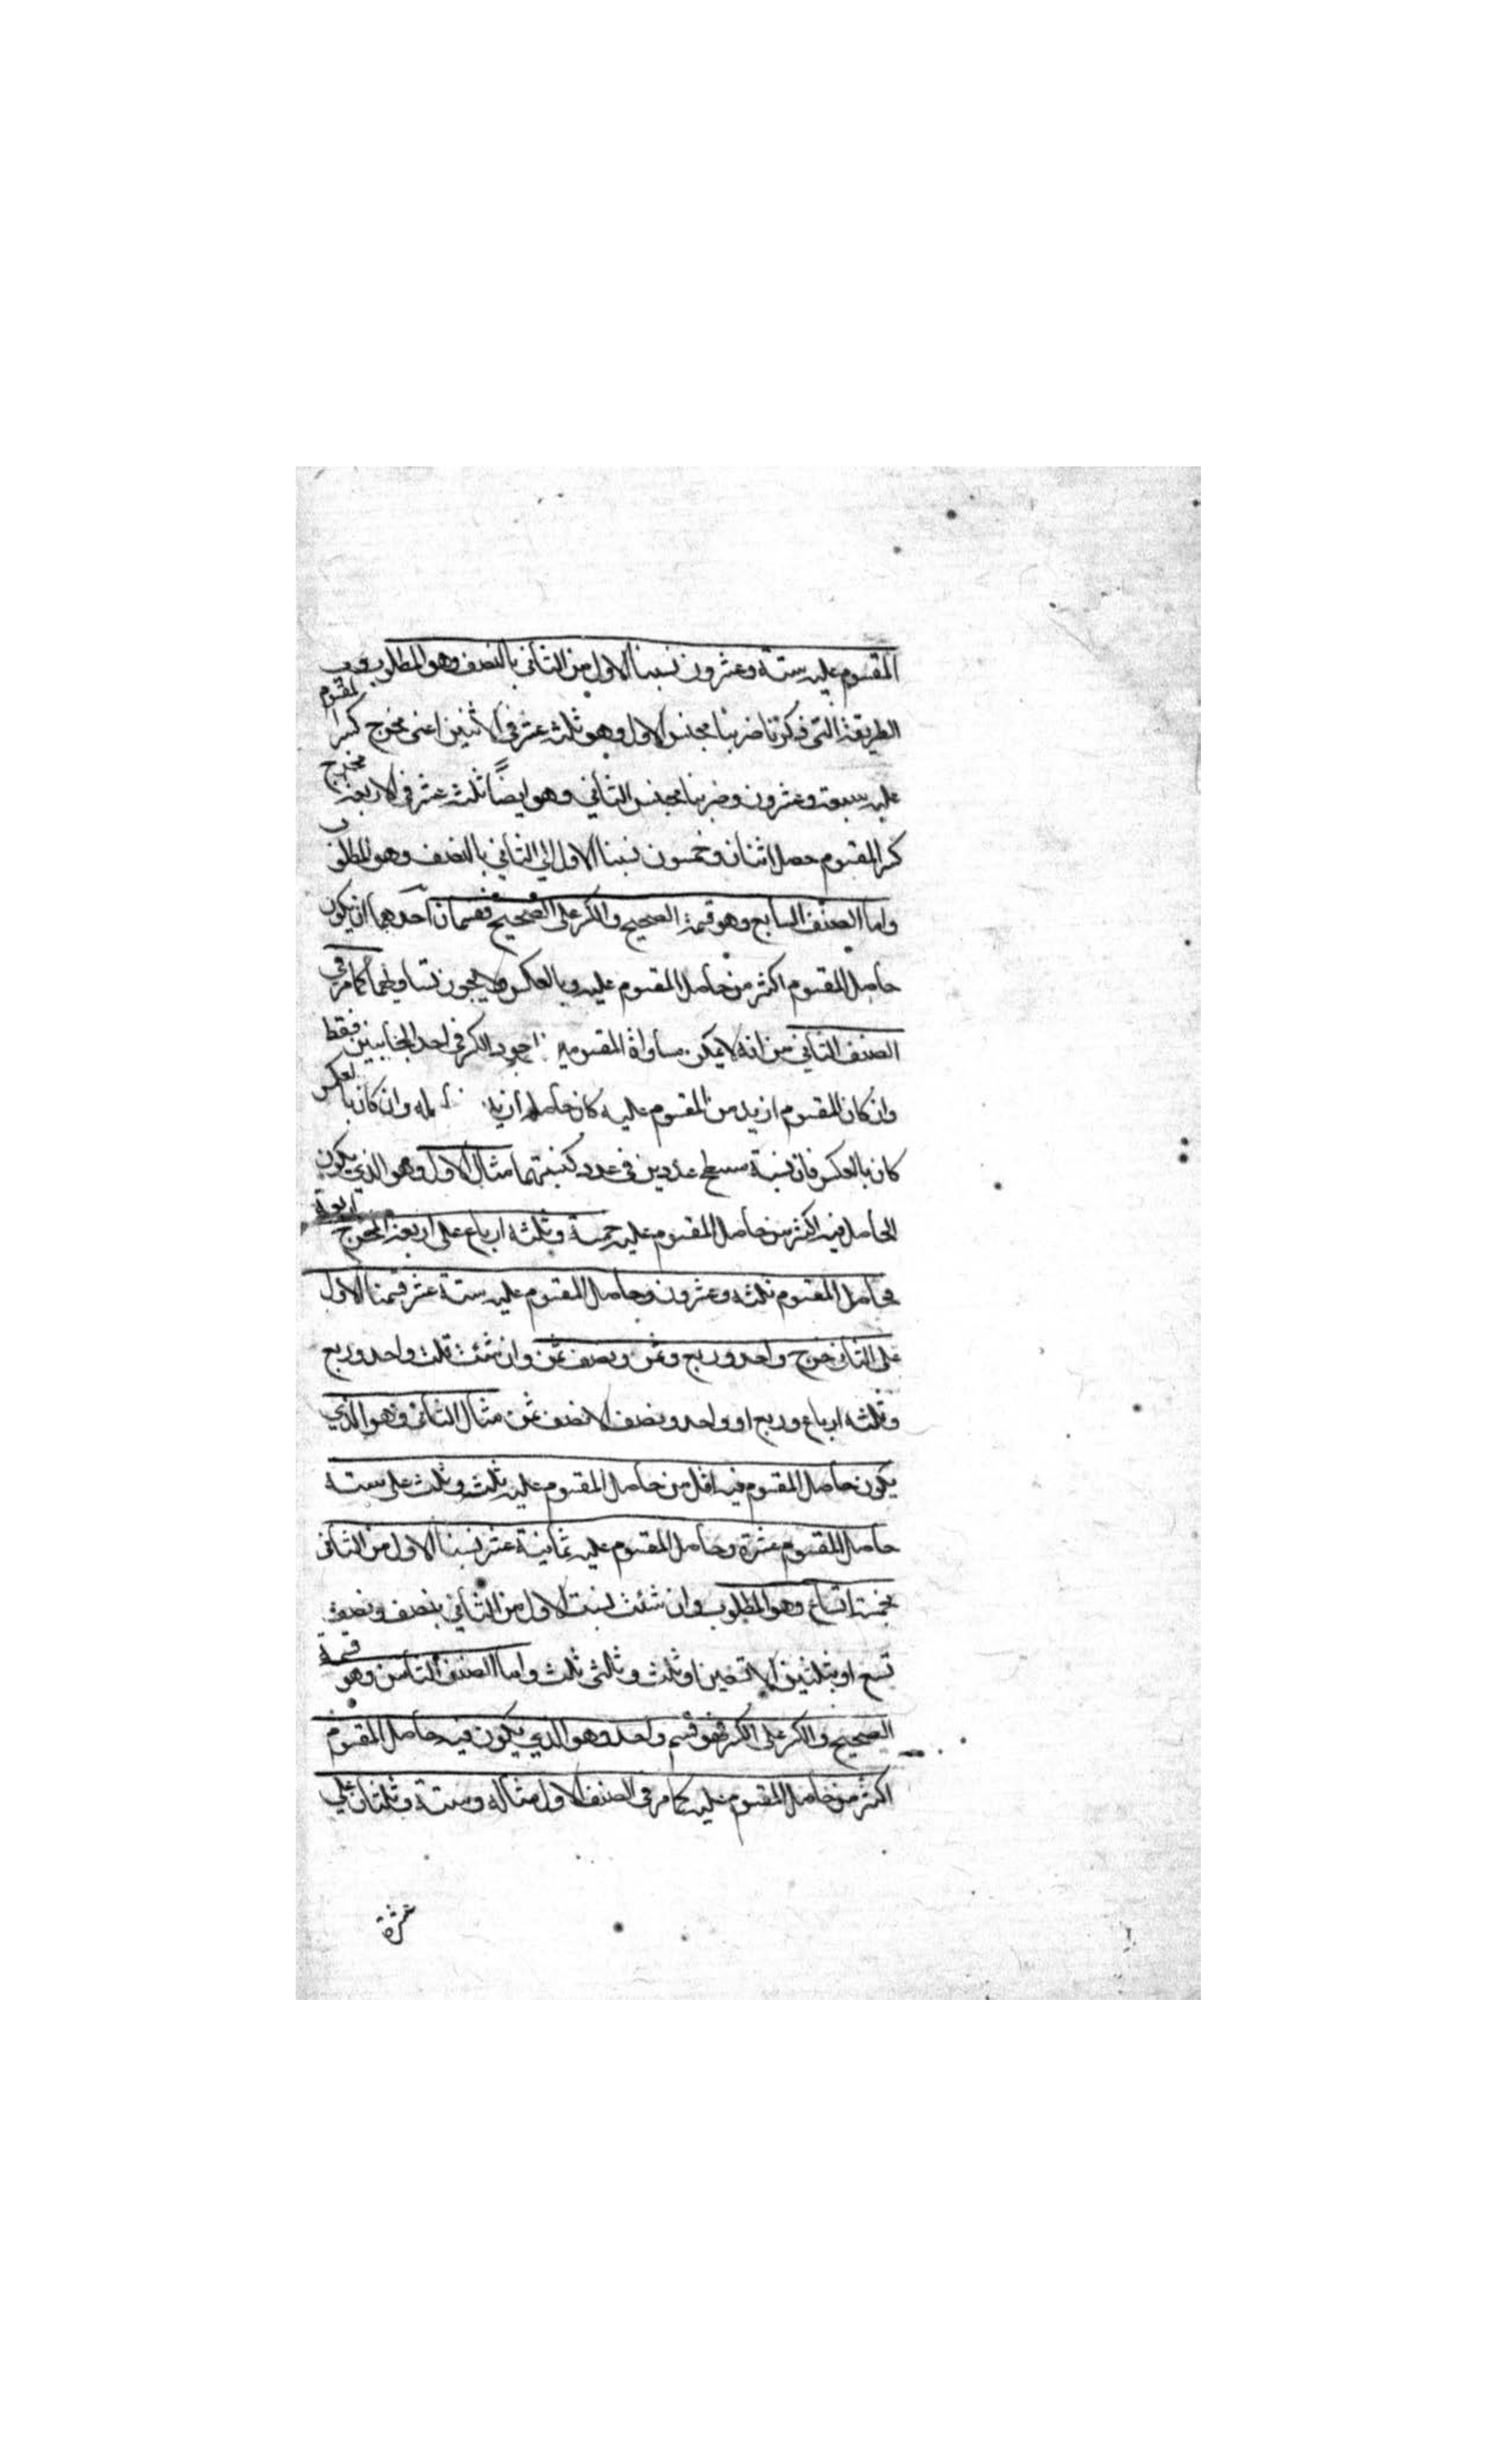 المقسوم عليه ستة وعشرون نسبنا الاول من الثاني بالنصف وهو المطلوب وب
الطريقة التي ذكرنا ضربنا مجنس الاول وهو ثلثة عشر في الاثنين اعني مخرج كسر المقسوم
عليه ستة وعشرون وضربنا مجنس الثاني وهو ايضًا ثلثة عشر في الاربعة مخرج
كسر المقسوم حصل اثنان وخمسون نسبنا الاول الي الثاني بالنصف وهو المطلوب
واما الصنف السابع وهو قسمة الصحيح والكسر علي الصحيح فقسمان احدهما ان يكون
حاصل المقسوم اكثر من حاصل المقسوم عليه وبالعكس ولا يجوز تساويهما كما مر في
الصنف الثاني من انه لا يمكن مساواة المقسومين لوجود الكسر في احد الجانبين فقط
وان كان المقسوم ازيد من المقسوم عليه كان حاصله ازيد وان كان بالعكس
كان بالعكس فان نسبة مسطح عددين في عدد كنسبتهما مثال الاول وهو الذي يكون
الحاصل فيه اكثر من حاصل المقسوم عليه خمسة وثلثه ارباع علي اربعة المخرج اربعة
فحاصل المقسوم ثلثه وعشرون وحاصل المقسوم عليه ستة عشر قسمنا الاول
علي الثاني خرج واحد وربع وثمن ونصف ثمن وان شئت قلت واحد وربع
وثلثه ارباع وربع او واحد ونصف الا نصف ثمن مثال الثاني وهو الذي
يكون حاصل المقسوم فيه اقل من حاصل المقسوم عليه ثلث وثلث علي ستة
حاصل المقسوم عشرة وحاصل المقسوم عليه ثمانية عشر نسبنا الاول من الثاني
بخمسة اتساع وهو المطلوب وان شئت نسبت الاول من الثاني بنصف ونصف
تسع او بثلثين الا تسعين او ثلث وثلثي ثلث واما الصنف الثامن وهو قسمة
الصحيح والكسر علي الكسر فهو قسم واحد وهو الذي يكون فيه حاصل المقسوم
اكثر من حاصل المقسوم عليه كما مر في الصنف الاول مثاله وستة وثلثان علي